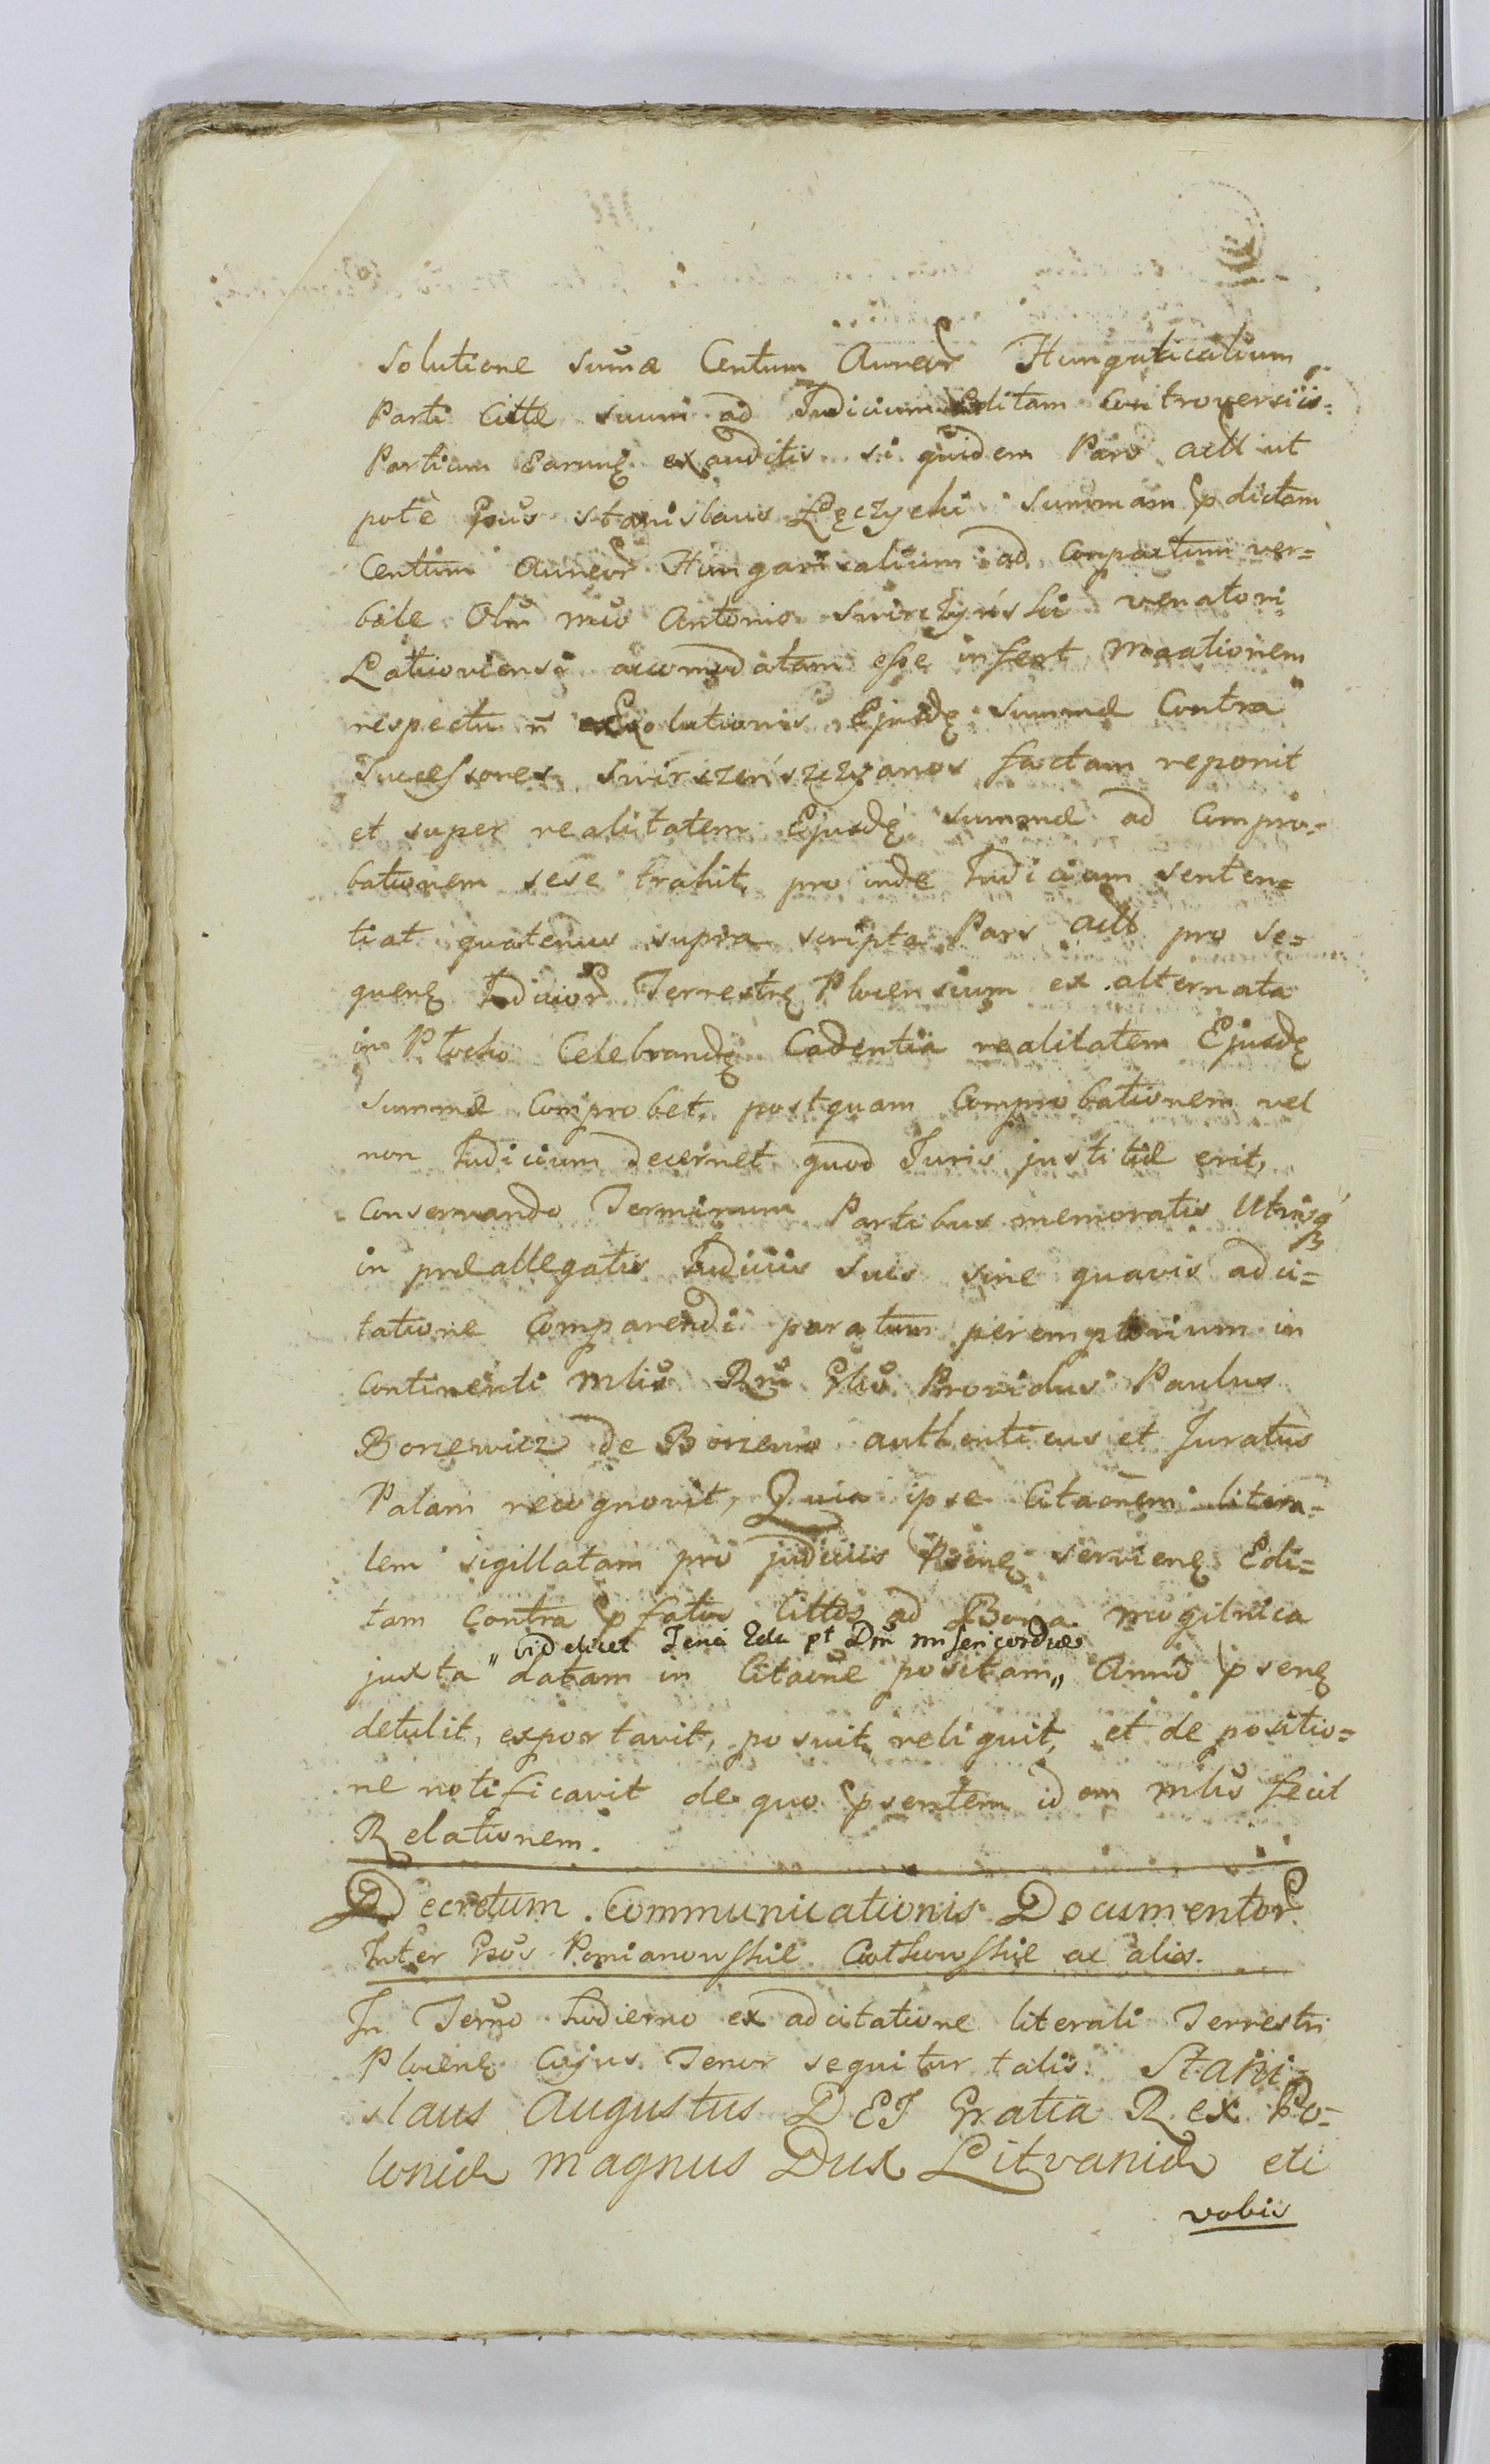 Solutione sumæ Centum Aureor Hungaricalium
Parti Cittæ suum ad Judicium Editam Controversiis
Partium Earunḑ exauditis si quidem Pars actt ut
pote Gsus Stanislaus Łęczycki Summam pdictam
Centum Aureor Hungaricalium ad Compactum ver=
bale Olm mco Antonio Swirczyński venatori
Latioviensi accomodatam esse infert Maationem
respectu ñ exolutionis Ejusdę Summæ Contra
Sucessores Swirszeńszczyanos factam reponit
et super realitatem Ejusdę Summæ ad Compro=
bationem sese trahit, pro inde Judicium senten=
tiat quatenus supra scripta Pars actt pro se=
quenę Judicior Terrestrę Plocensium ex alternata
in Płocko Celebrandę Cadentia realitatem Ejusdę
Summæ Comprobet, postquam Comprobationem vel
non Judicium decernet quod Juris justitiæ erit,
Conservando Terminum Partibus memoratis Utrisq
in præallegatis Judiciis Suis sine quavis adci=
tatione Comparendi paratum peremptorium in
Continenti Mlis Rni Glis Providus Paulus
Borzewicz de Borzewo authenticus et Juratus
Palam recognovit, Quia ipse Citaõnem litera=
lem sigillatam pro judiciis Psenę servienę Edi=
tam Contra pfatos Cittos ad Bona Mogilnica
„ videlicet Feria 2da pt Dm Misericordiæ
juxta datam in Citaõne positam „ Anno psenę
detulit, exportavit, posuit, reliquit, et de positio=
ne notificavit de quo psentem idem Mlis fecit
Relationem.
Decretum Communicationis Documentor
Inter Gsos Pomianowskie Cothowskie ac alios.
In Termo hodierno ex adcitatione literali Terrestri
Plocenę Cujus Tenor sequitur talis. Stani=
slaus Augustus DEI Gratia Rex Po=
loniæ Magnus Dux Litvaniæ etc
vobis